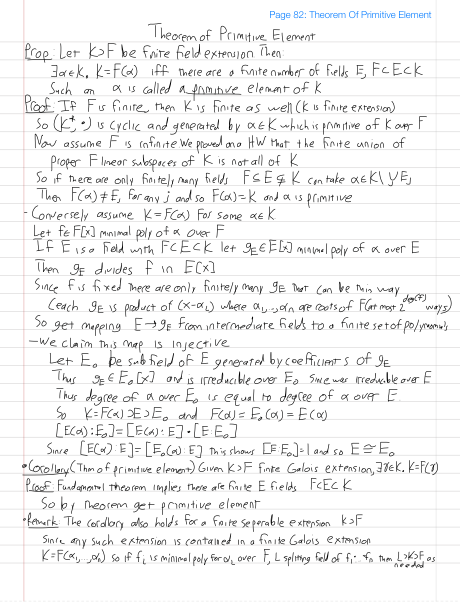 Page 82: Theorem Of Primitive Element
Theorem of Primitive Element
Prop: Let K⊃F be finite field extension Then:
∃α∈K, K=F(α) iff there are a finite number of fields E, F⊂E⊂K
Such an α is called a primitive element of K
Proof: If F is finite, then K is finite as well (K is finite extension)
So (K^×, ·) is cyclic and generated by α∈K which is primitive of K over F
Now assume F is infinite We proved on HW that the finite union of
proper F linear subspaces of K is not all of K
So if there are only finitely many fields F⊆E⊊K can take α∈K\∪E_j
Then F(α)≠E_j for any j and so F(α)=K and α is primitive
- Conversely assume K=F(α) for some α∈K
Let f∈F[x] minimal poly of α over F
If E is a field with F⊂E⊂K let g_E∈E[x] minimal poly of α over E
Then g_E divides f in E[x]
Since f is fixed there are only finitely many g_E that can be this way
(each g_E is product of (x-α_i) where α_1,..,α_n are roots of F (at most 2^deg(f) ways)
So get mapping E→g_E from intermediate fields to a finite set of polynomials
- We claim this map is injective
Let E_0 be subfield of E generated by coefficients of g_E
Thus g_E∈E_0[x] and is irreducible over E_0 since was irreducible over E
Thus degree of α over E_0 is equal to degree of α over E
So K=F(α)⊃E⊃E_0 and F(α)=E_0(α)=E(α)
[E(α):E_0]=[E(α):E]·[E:E_0]
Since [E(α):E]=[E_0(α):E] this shows [E:E_0]=1 and so E≅E_0
• Corollary (Thm of primitive element) Given K⊃F finite Galois extension, ∃γ∈K, K=F(γ)
Proof: Fundamental theorem implies there are finite E fields F⊂E⊂K
So by theorem get primitive element
• Remark: The corollary also holds for a finite seperable extension K⊃F
Since any such extension is contained in a finite Galois extension
K=F(α_1,..,α_n) so if f_i is minimal poly for α_i over F, L splitting field of f_1··f_n then L⊃K⊃F as
needed